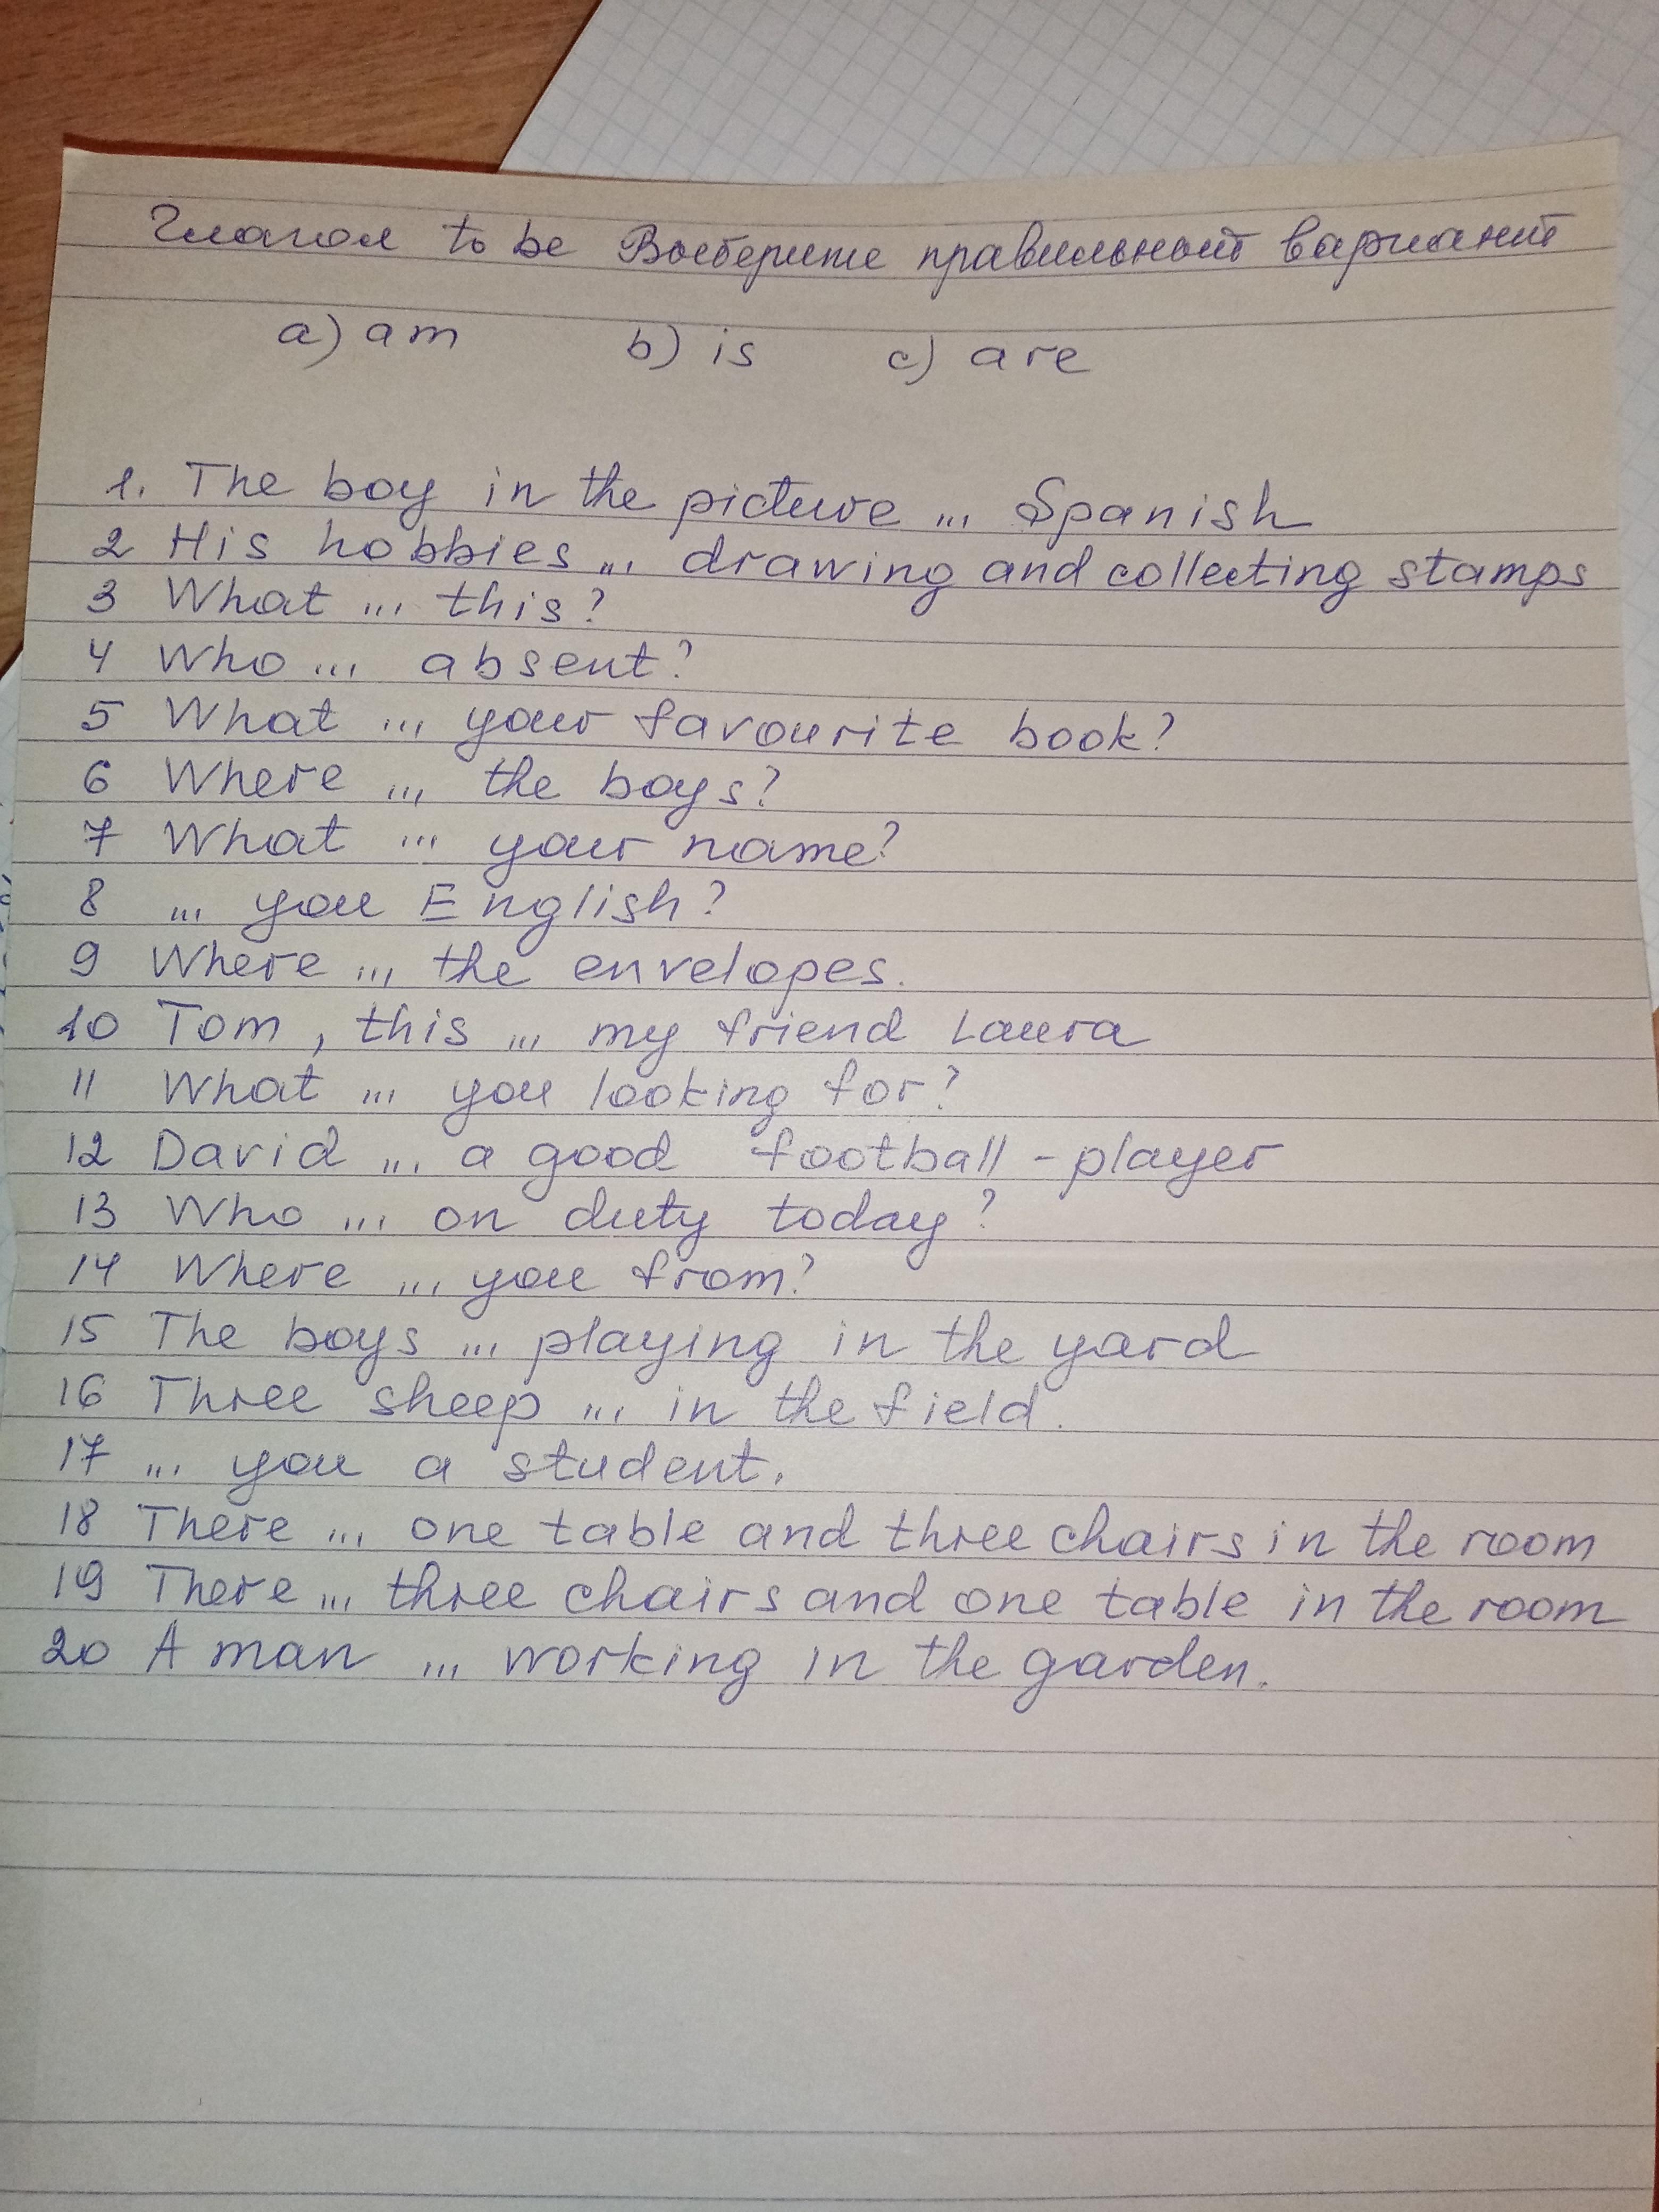 Глагол to be Выберите правильный вариант
a) am b) is c) are
1. The boy in the picture ... Spanish
2 His hobbies ... drawing and collecting stamps
3 What ... this?
4 Who ... absent?
5 What ... your favourite book?
6 Where ... the boys?
7 What ... your name?
8 ... you English?
9 Where ... the envelopes.
10 Tom, this ... my friend Laura
11 What ... you looking for?
12 David ... a good football-player
13 Who ... on duty today?
14 Where ... you from?
15 The boys ... playing in the yard
16 Three sheep ... in the field.
17 ... you a student.
18 There ... one table and three chairs in the room
19 There ... three chairs and one table in the room
20 A man ... working in the garden.